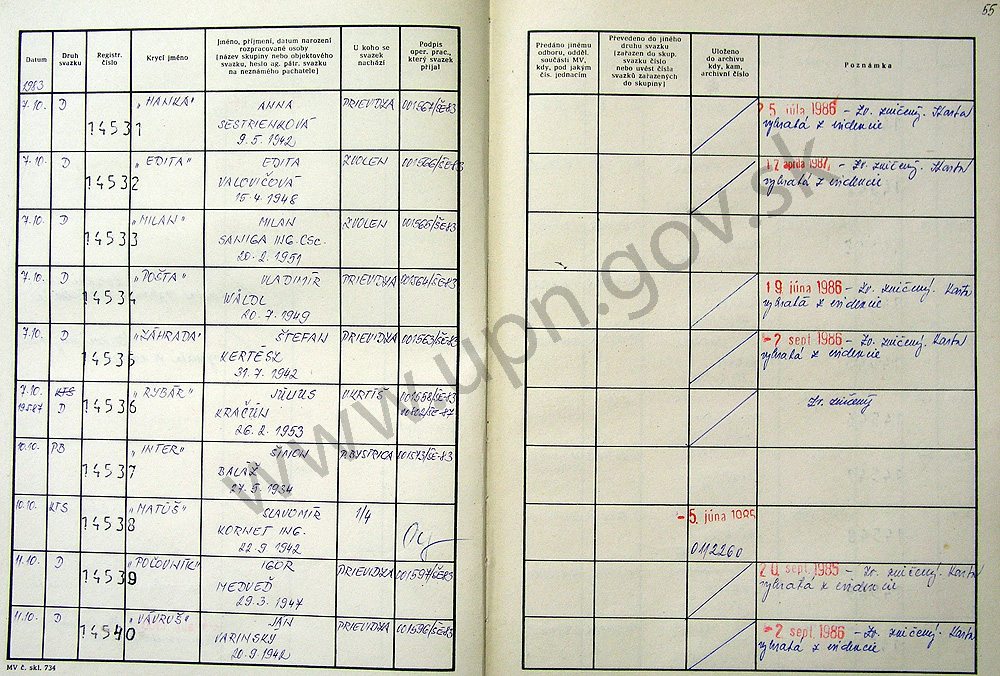 55
Datum
Druh svazku
Registr. číslo
Krycí jméno
Jméno, příjmení, datum narození
rozpracované osoby
(název skupiny nebo objektového
svazku, heslo ag. pátr. svazku
na neznámého pachatele)
U koho se
svazek
nachází
Podpis
oper. prac.,
který svazek
přijal
Předáno jinému
odboru, odděl.
součásti MV,
kdy, pod jakým
čís. jednacím
Převedeno do jiného
druhu svazku
(zařazen do skup.
svazku číslo
nebo uvést čísla
svazků zařazených
do skupiny)
Uloženo
do archivu
kdy, kam,
archivní číslo
Poznámka
1983
7.10. D 14531 "HANKA" ANNA PRIEVIDZA 001567/ŠE-83
SESTRIENKOVÁ
9.5.1942
25. júla 1986 - Zv. zničený. Karta
vybratá z evidencie
7.10. D 14532 "EDITA" EDITA ZVOLEN 001566/ŠE-83
VALOVIČOVÁ
15.4.1948
17. apríla 1987 - Zv. zničený. Karta
vybratá z evidencie
7.10. D 14533 "MILAN" MILAN ZVOLEN 001565/ŠE-83
SANIGA ING. CSc.
20.2.1951
7.10. D 14534 "POŠTA" VLADIMÍR PRIEVIDZA 001564/ŠE-83
WÄLDL
20.7.1949
19. júna 1986 - Zv. zničený. Karta
vybratá z evidencie
7.10. D 14535 "ZÁHRADA" ŠTEFAN PRIEVIDZA 001563/ŠE-83
KERTÉSZ
31.7.1942
-2. sept. 1986 - Zv. zničený. Karta
vybratá z evidencie
7.10. KTS 14536 "RYBÁR" JÚLIUS V.KRTÍŠ 001558/ŠE-83
D KRAČÚN
26.2.1953
Zv. zničený
10.10. PB 14537 "INTER" ŠIMON P.BYSTRICA 001573/ŠE-83
BALÁŽ
27.5.1934
10.10. KTS 14538 "MATÚŠ" SLAVOMÍR 1/4
KORNET ING.
22.9.1942
-5. júna 1985
0112260
11.10. D 14539 "POČOVNÍK" IGOR PRIEVIDZA 001597/ŠE-83
MEDVEĎ
29.3.1947
20. sept. 1985 - Zv. zničený. Karta
vybratá z evidencie
11.10. D 14540 "VAVRUŠ" JÁN PRIEVIDZA 001596/ŠE-83
VARINSKY
20.9.1942
-2. sept. 1986 - Zv. zničený. Karta
vybratá z evidencie
MV č. skl. 734
www.upn.gov.sk